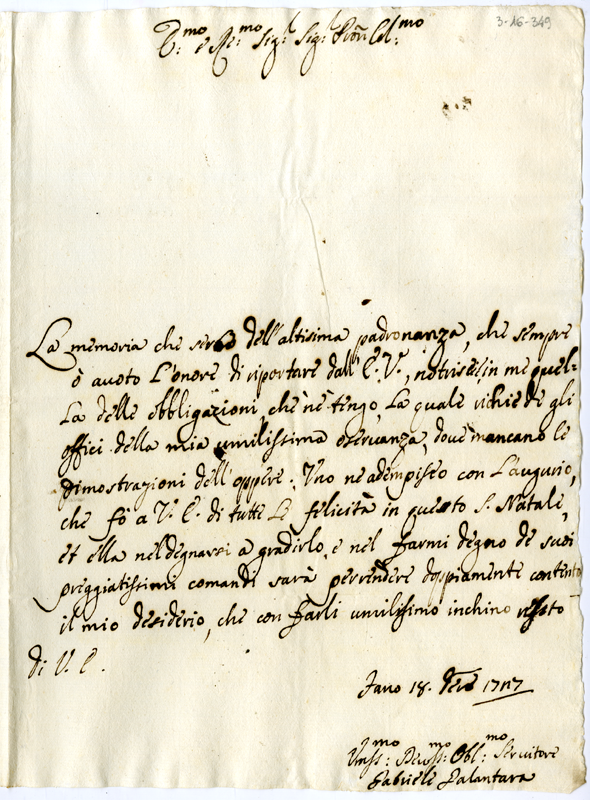 3-16-349
Ill:mo e Re:mo Sig:r Sig:r Pron Col:mo
La memoria che serbo dell'altisima padronanza, che sempre
ò auoto L'onore di riportare dall'E. V., notrisce in me quel-
La delle obbligazioni, che nè tengo, La quale richiede gli
offici della mia umilissima oseruanza, doue mancano le
dimostrazioni dell'oppere. Uno ne adempisco con L'augurio,
che fò a V. E. di tutte Le felicità in questo S. Natale,
et ella nel degnarsi a gradirlo, e nel farmi degno de suoi
preggiatissimi comandi sarà per rendere doppiamente contento
il mio desiderio, che con farli umilisimo inchino resto
di V. E.
Fano 18. Xbre 1717
Um:mo Deuo:mo Obl:mo Seruitore
Gabriele Palantara